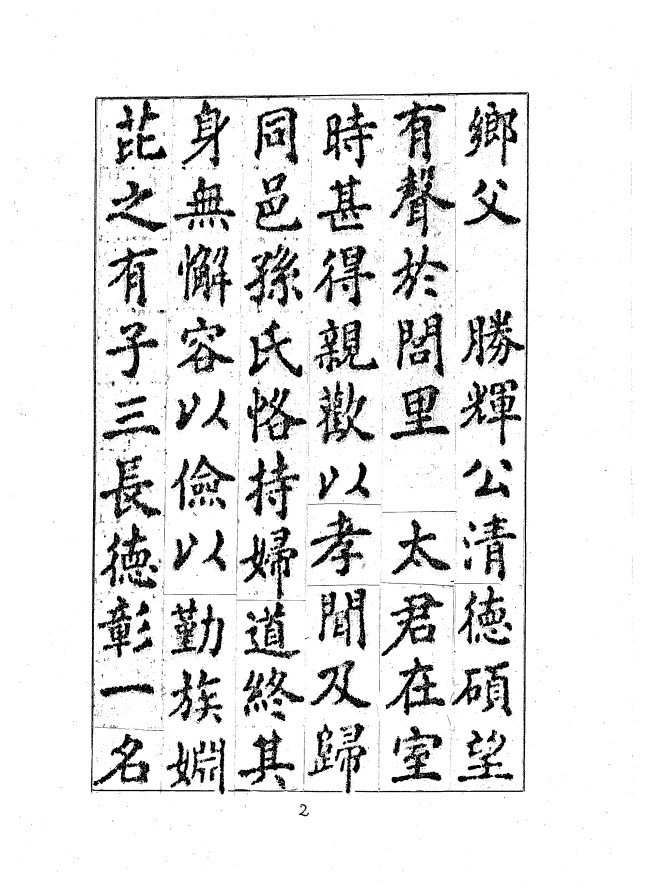 鄉父　勝輝公清德碩望
有聲於閭里　太君在室
時甚得親歡以孝聞及歸
同邑孫氏恪持婦道終其
身無懈容以儉以勤族婣
芘之有子三長德彰一名
2